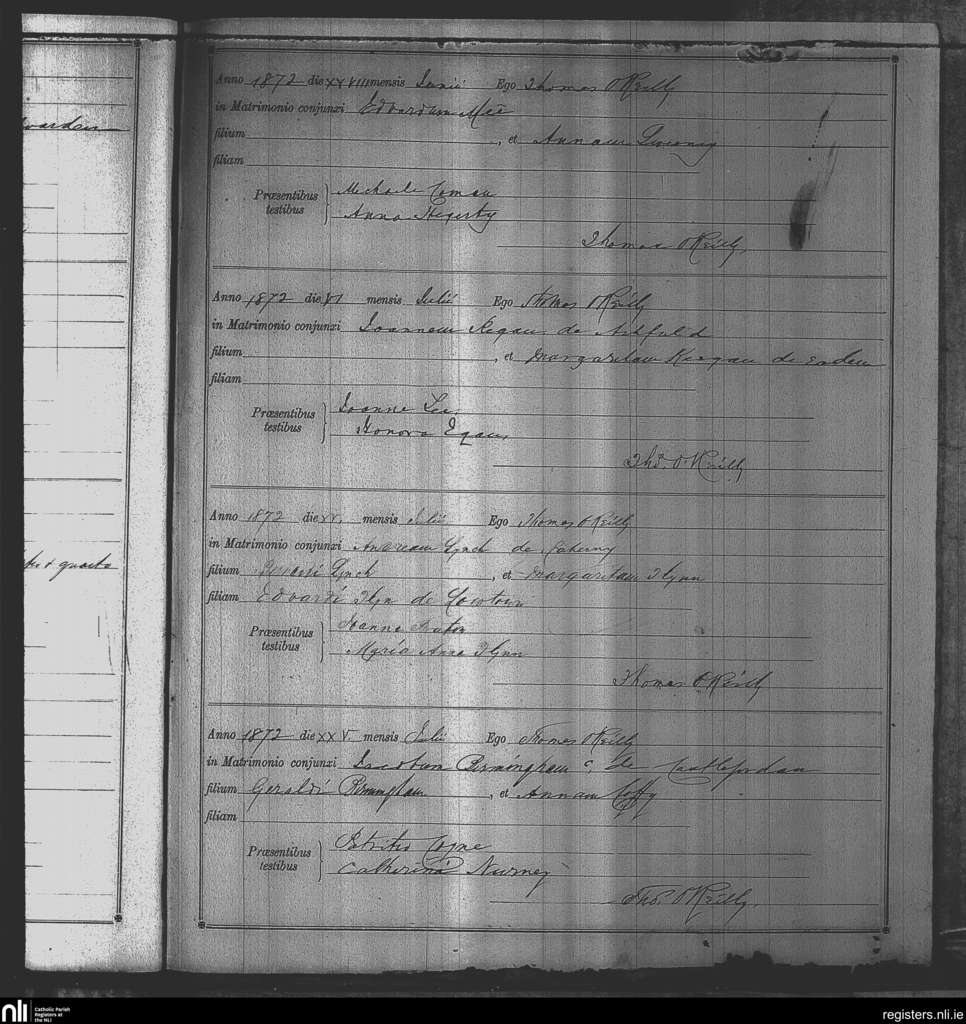 warden
tes & quarta
Anno 1872 die XXVIII mensis Junii Ego Thomas O'Reilly
in Matrimonio conjunxi Edvardum Mee
filium , et Annam
filiam
Præsentibus testibus Michaele Coman
Anna Hegerty
Thomas O'Reilly
Anno 1872 die VI mensis Julii Ego Thomas O'Reilly
in Matrimonio conjunxi Joannem Regan de Ashfield
filium , et Margaritam Keegan de
filiam
Præsentibus testibus Joanne Lee
Honora Egan
Ths. O'Reilly
Anno 1872 die XV. mensis Julii Ego Thomas O'Reilly
in Matrimonio conjunxi Andream Lynch de
filium Lynch , et Margaritam Flynn
filiam Edvardi Flyn de
Præsentibus testibus Joanne
Maria Anna Flynn
Thomas O'Reilly
Anno 1872 die XXV. mensis Julii Ego Thomas O'Reilly
in Matrimonio conjunxi Jacobum Birmingham de Castlejordan
filium Geraldi Birmingham , et Annam Coffy
filiam
Præsentibus testibus Patritio Coyne
Catherina Nurney
Ths. O'Reilly.
nli Catholic Parish Registers at the NLI
registers.nli.ie